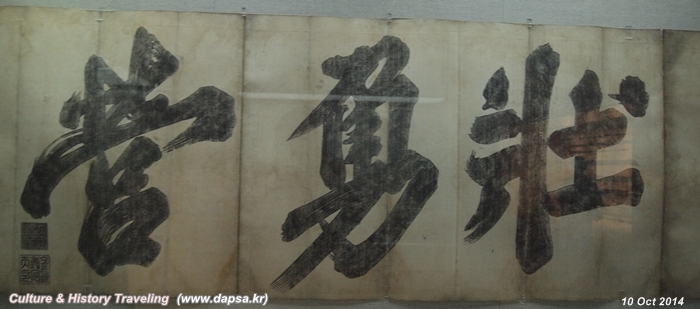 壯勇營
Culture & History Traveling (www.dapsa.kr)
10 Oct 2014